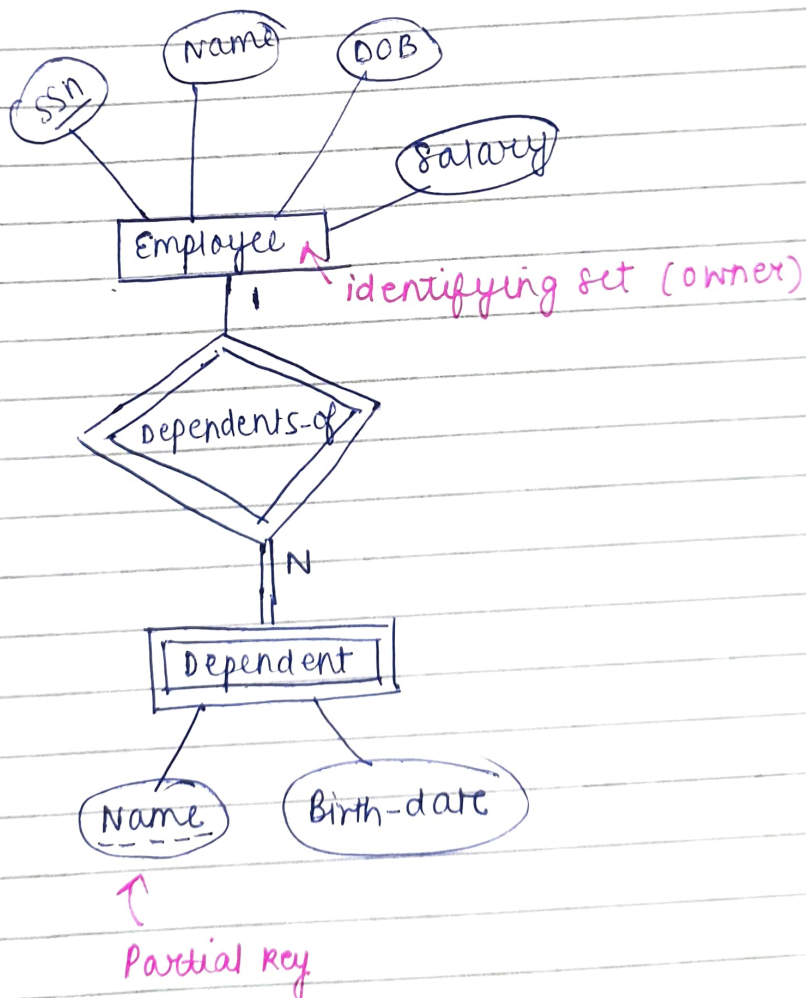 Name
DOB
SSN
Salary
Employee
identifying set (owner)
1
Dependents-of
N
Dependent
Name
Birth-date
Partial Key